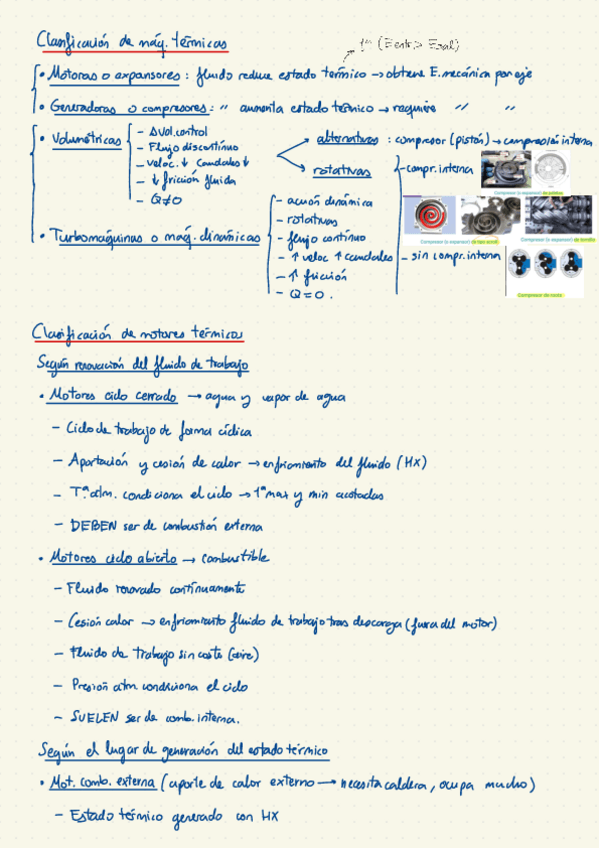 Clasificación de máq. térmicas
1º (Eentr > Esal)
• Motoras o expansores : fluido reduce estado térmico → obtiene E.mecánica por eje
• Generadoras o compresores : " aumenta estado térmico → requiere " "
• Volumétricas
- ΔVol.control
- Flujo discontinuo
- veloc.↓ caudales↓
- ↓ fricción fluida
- Q≠0
alternativas : compresor (pistón) → compresión interna
rotativas
- compr. interna
Compresor (o expansor) de paletas
Compresor (o expansor) de tipo scroll
Compresor (o expansor) de tornillo
- sin compr. interna
Compresor de roots
• Turbomáquinas o máq. dinámicas
- acción dinámica
- rotativas
- flujo continuo
- ↑ veloc ↑ caudales
- ↑ fricción
- Q=0.
Clasificación de motores térmicos
Según renovación del fluido de trabajo
• Motores ciclo cerrado → agua y vapor de agua
- Ciclo de trabajo de forma cíclica
- Aportación y cesión de calor → enfriamiento del fluido (HX)
- Tª atm. condiciona el ciclo → Tª max y min acotadas
- DEBEN ser de combustión externa
• Motores ciclo abierto → combustible
- Fluido renovado continuamente
- Cesión calor → enfriamiento fluido de trabajo tras descarga (fuera del motor)
- Fluido de trabajo sin coste (aire)
- Presión atm. condiciona el ciclo
- SUELEN ser de comb. interna.
Según el lugar de generación del estado térmico
• Mot. comb. externa (aporte de calor externo → necesita caldera, ocupa mucho)
- Estado térmico generado con HX